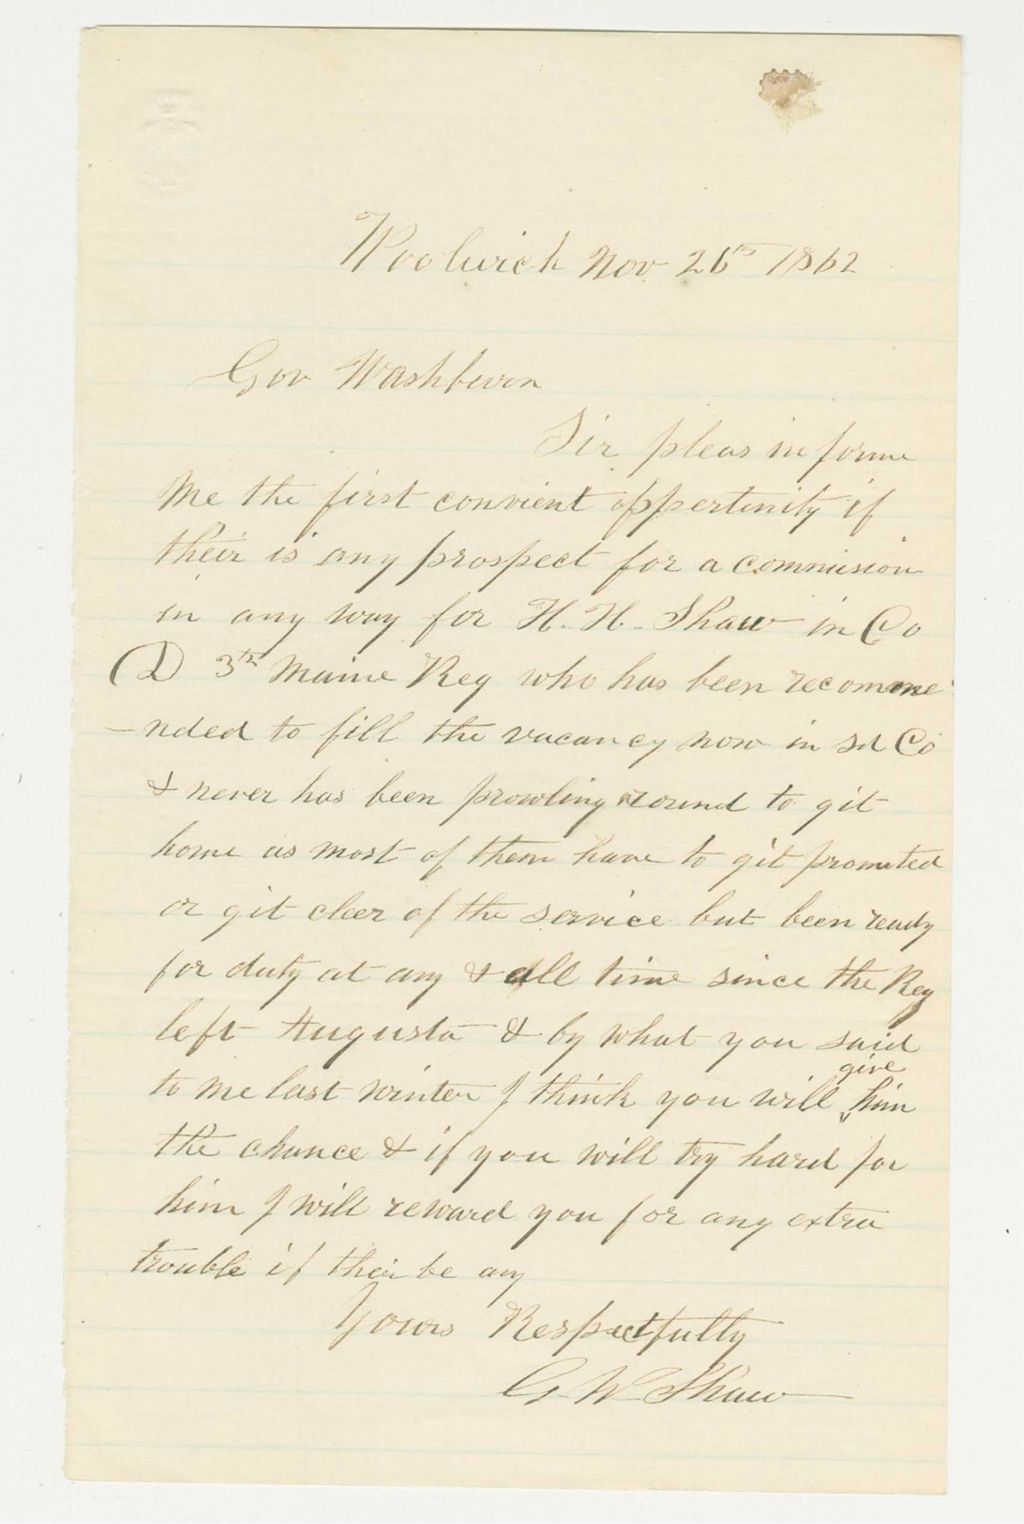 Woolwich Nov 26th 1862
Gov Washburn
Sir pleas informe
Me the first convient oppertinity if
their is any prospect for a commision
in any way for H. H. Shaw in Co
(D) 3th Maine Reg who has been recomme
-nded to fill the vacancy now in sd Co
& never has been prowling around to git
home as most of them have to git promoted
or git cleer of the service but been ready
for duty at any & all time since the Reg
left Augusta & by what you said
to me last winter I think you will give him
the chance & if you will try hard for
him I will reward you for any extra
trouble if their be any
Yours Respectfully
G. W. Shaw